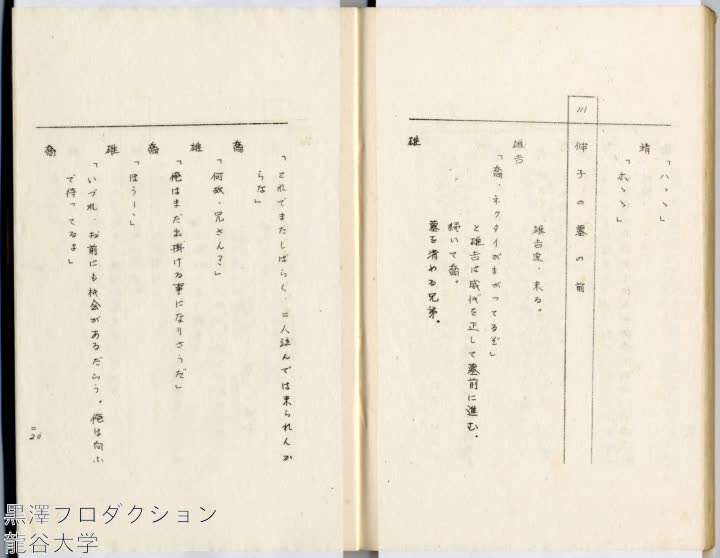 「ハヽヽ」
靖
「ホヽヽ」
三 伸子の墓の前
雄吉達、来る。
雄吉
「喬、ネクタイがまがつてるぞ」
と雄吉は威儀を正して墓前に進む。
続いて喬。
墓を清める兄弟。
雄
「これでまたしばらく、二人並んでは来られんか
らな」
喬
「何故、兄さん?」
雄
「俺はまだ出掛ける事になりさうだ」
喬
「ほうー、」
雄
「いづれ、お前にも機会があるだらう。俺は向ふ
で待つてるよ」
喬
=20
黒澤プロダクション
龍谷大学